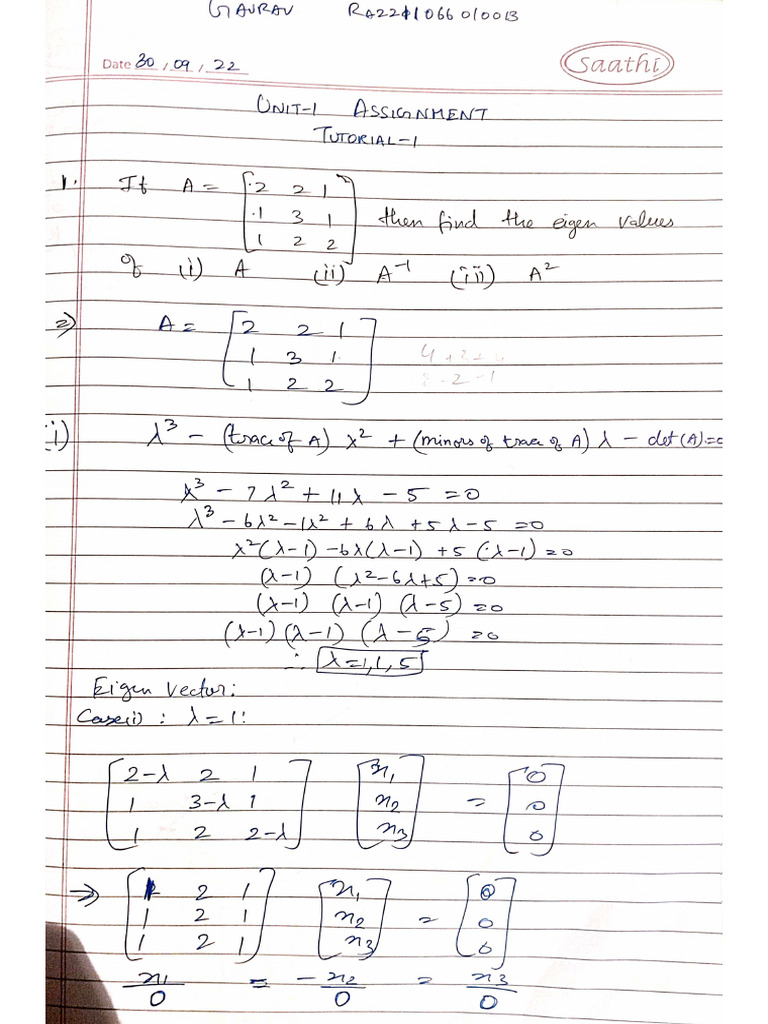 GAURAV RA2211066010013
Date 30, 09, 22 Saathi
UNIT-1 ASSIGNMENT
TUTORIAL-1
1. If A = [2 2 1
1 3 1 then find the eigen values
1 2 2]
of (i) A (ii) A⁻¹ (iii) A²
⇒ A = [2 2 1
1 3 1
1 2 2]
(i) λ³ - (trace of A) λ² + (minors of trace of A) λ - det(A)=0
λ³ - 7λ² + 11λ - 5 = 0
λ³ - 6λ² - 1λ² + 6λ + 5λ - 5 = 0
λ²(λ-1) - 6λ(λ-1) + 5(λ-1) = 0
(λ-1) (λ²-6λ+5) = 0
(λ-1) (λ-1) (λ-5) = 0
(λ-1) (λ-1) (λ-5) = 0
∴ λ=1,1,5
Eigen Vector:
Case(i) : λ = 1:
[2-λ 2 1 [x₁ [0
1 3-λ 1 x₂ = 0
1 2 2-λ] x₃] 0]
⇒ [1 2 1 [x₁ [0
1 2 1 x₂ = 0
1 2 1] x₃] 0]
x₁/0 = -x₂/0 = x₃/0